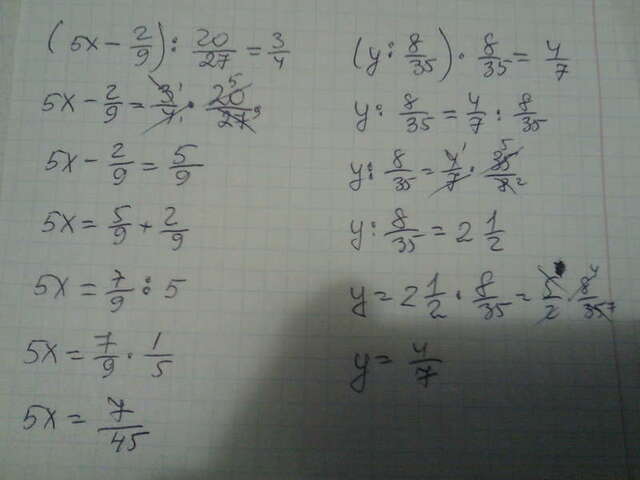 (5x - 2/9) : 20/27 = 3/4
5x - 2/9 = 3¹/4 · 20⁵/27⁹
5x - 2/9 = 5/9
5x = 5/9 + 2/9
5x = 7/9 : 5
5x = 7/9 · 1/5
5x = 7/45
(y : 8/35) · 8/35 = 4/7
y : 8/35 = 4/7 : 8/35
y : 8/35 = 4¹/7 · 35⁵/8²
y : 8/35 = 2 1/2
y = 2 1/2 · 8/35 = 5/2 8⁴/35⁷
y = 4/7